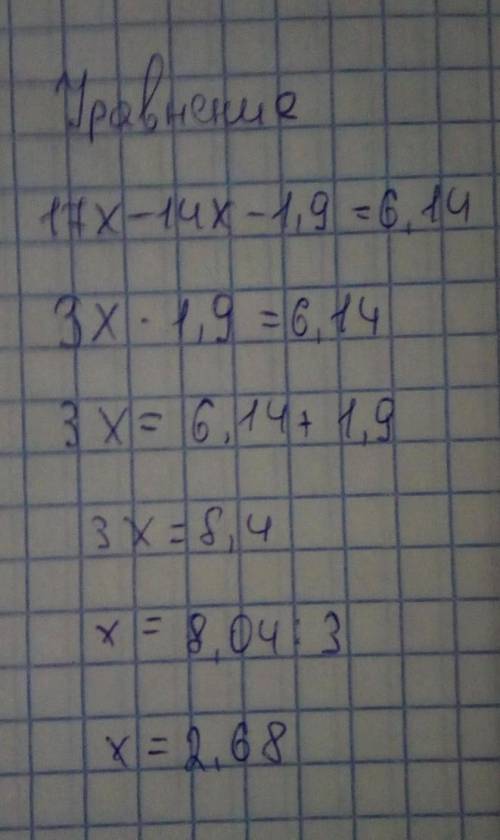 Уравнение
17x - 14x - 1,9 = 6,14
3x · 1,9 = 6,14
3x = 6,14 + 1,9
3x = 8,4
x = 8,04 : 3
x = 2,68